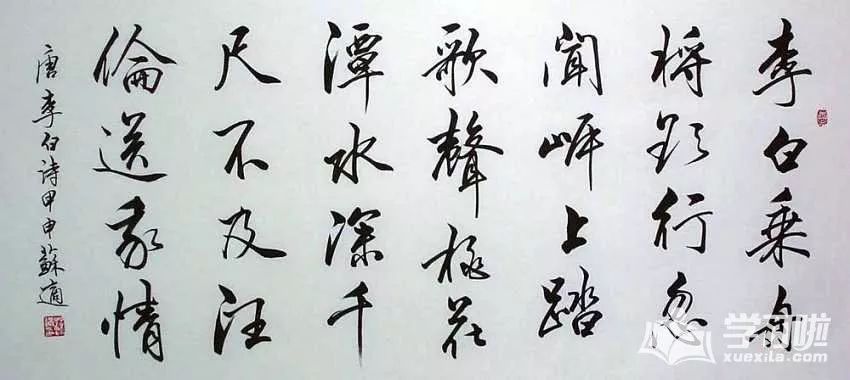 李白乘舟
將欲行忽
聞岸上踏
歌聲桃花
潭水深千
尺不及汪
倫送我情
唐李白詩甲申蘇適
学习啦
xuexila.com